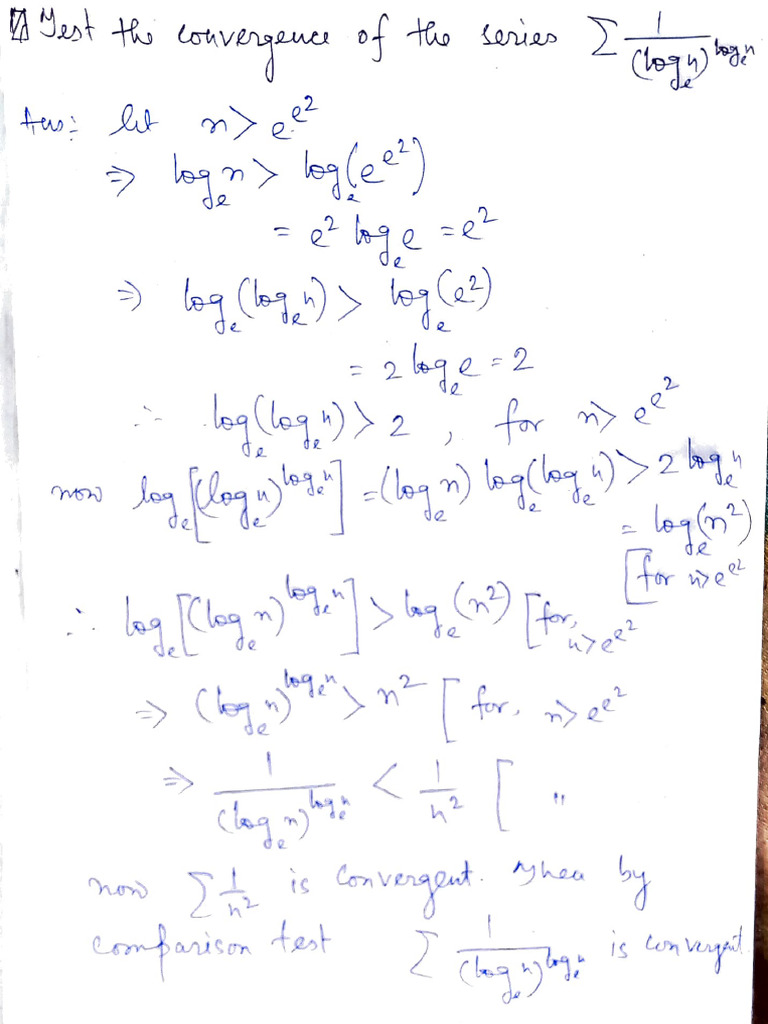 Test the convergence of the series Σ 1/(logₑn)^(logₑn)
Ans: let n > e^(e^2)
⇒ logₑn > logₑ(e^(e^2))
= e^2 logₑe = e^2
⇒ logₑ(logₑn) > logₑ(e^2)
= 2 logₑe = 2
∴ logₑ(logₑn) > 2 , for n > e^(e^2)
now logₑ[(logₑn)^(logₑn)] = (logₑn) logₑ(logₑn) > 2 logₑn
= logₑ(n^2)
[for n > e^(e^2)
∴ logₑ[(logₑn)^(logₑn)] > logₑ(n^2) [for, n > e^(e^2)
⇒ (logₑn)^(logₑn) > n^2 [for, n > e^(e^2)
⇒ 1/(logₑn)^(logₑn) < 1/n^2 [ "
now Σ 1/n^2 is convergent. Then by
comparison test Σ 1/(logₑn)^(logₑn) is convergent